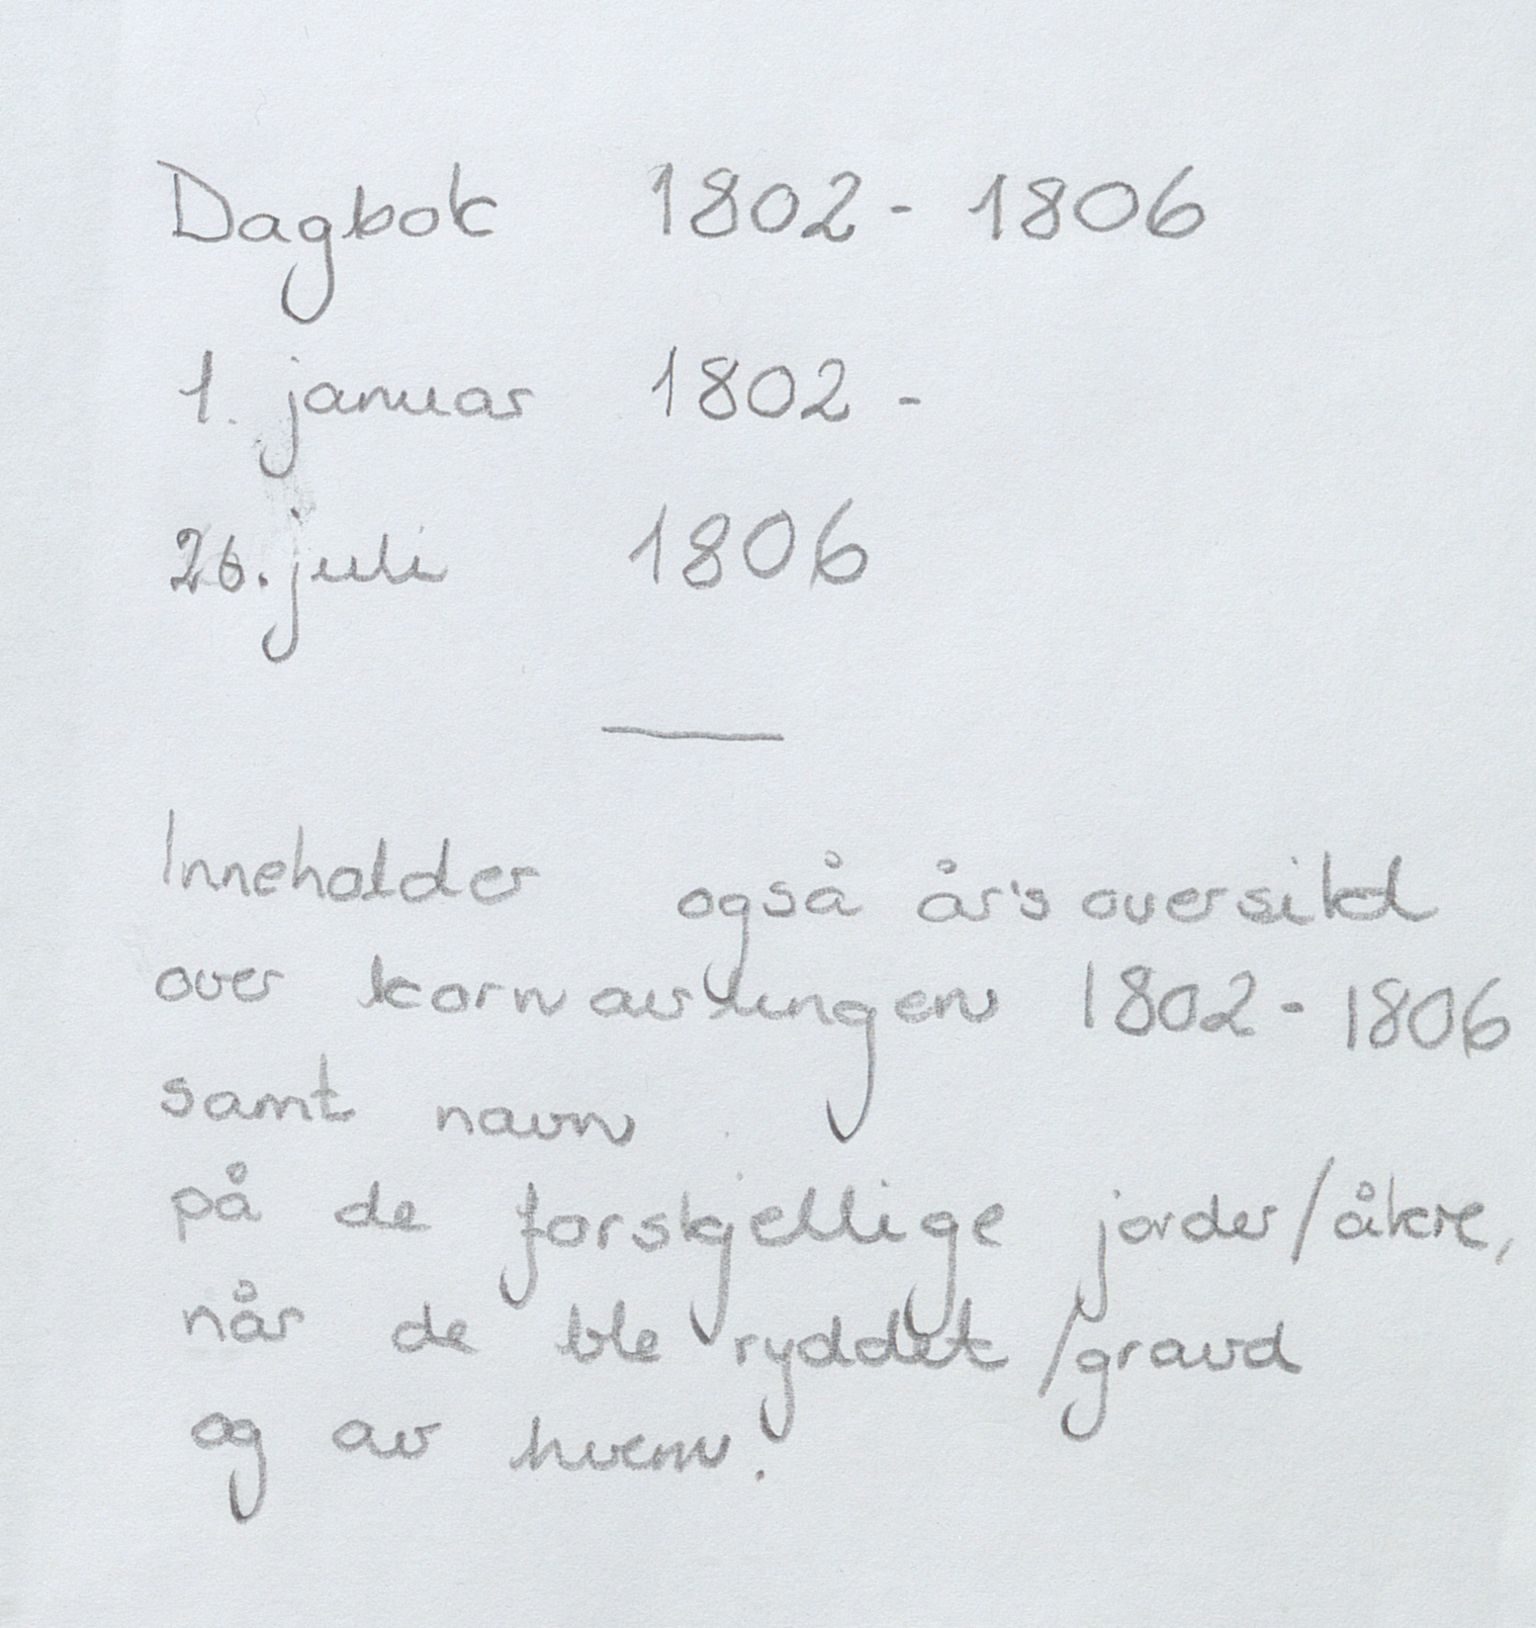 Dagbok 1802 - 1806
1. januar 1802 -
26. juli 1806
Inneholder også årsoversikt
over kornavlingen 1802 - 1806
samt navn
på de forskjellige jorder/åkre,
når de ble ryddet/gravd
og av hvem.